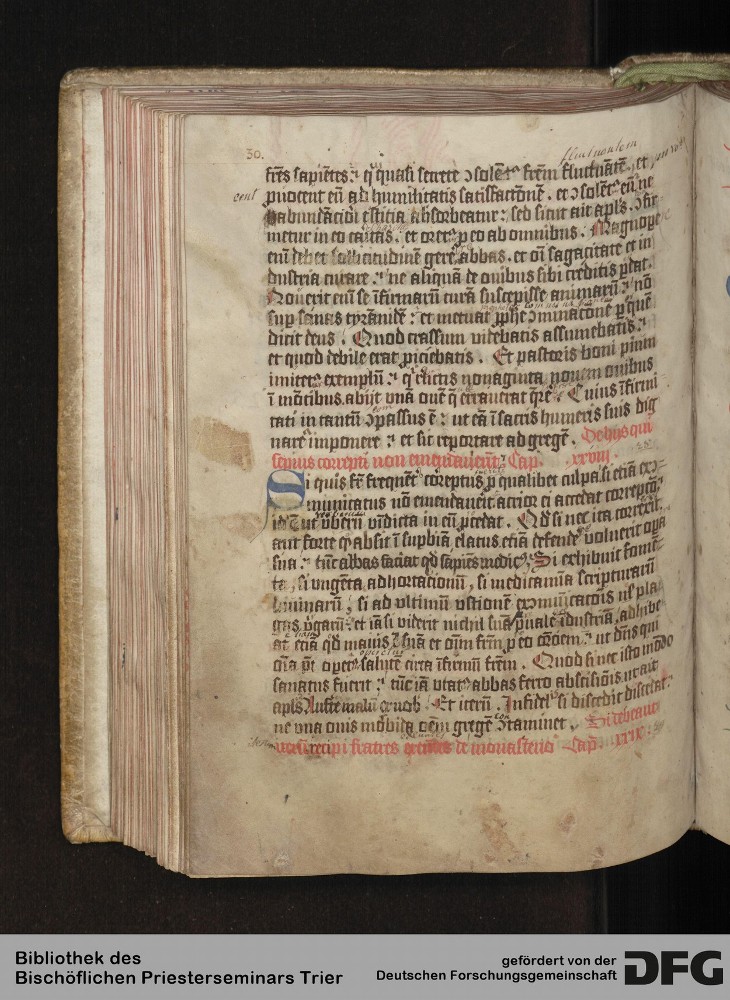 30.
fluctuantem
frēs sapiētes? q̄ quasi secrete ɔsolēt᷒ frēm fluctuātē. et
puocent eū ad humilitatis satisfactōnē. et ɔsolēt᷒ eū ne
habundāciori tsticia absorbeatur: sed sicut ait apls. ɔfir
metur in eo caritas. et oret᷒ p eo ab omnibus. Magnope
eni debet sollicitudinē gerē abbas. et oī sagacitate et in
dustria curare: ne aliquā de ouibus sibi creditis pdat.
Nouerit eni se īfirmarū curā suscepisse animarū: nō
sup sanas tyrānidē: et metuat pphē ɔminacōnē p quē
dicit deus. Quod crassum videbatis assumebatis:
et quod debile erat piciebatis. Et pastoris boni pium
imitet᷒ exemplū: q̄ relictis nonaginta nouem ouibus
ī mōtibus abijt vnā ouē q̄ errauerat q̄rē. Cuius īfirmi
tati in tantū ɔpassus ē: ut eā ī sacris humeris suis dig
naret᷒ imponere: et sic reportare ad gregē. De hijs qui
sepius correpti non emendauerīt: Cap. xxviij.
Si quis fr̄ frequēt᷒ correptus p qualibet culpa. si etiā exɔ
municatus nō emendauerit. acrior ei accedat correptō.
id ē ut vberū vīdicta in eū pcedat. Qd si nec ita correxit
aut forte qd absit ī supbiā elatus. etiā defendē voluerit opa
sua: tūc abbas faciat qd sapiēs medic᷒. Si exhibuit fomē
ta, si vngēta adhortacionū, si medicamīa scripturarū
diuinarū, si ad vltimū vstionē exɔmunicacōnis uł pla
gas v̓garū: et iā si viderit nichil suā pualē īdustriā, adhibe
at etiā qd maius ē suā et oīm frm̄ p eo orōem: ut dn̄s qui
oīa pt̄ opet᷒ salutē circa īfirmū frēm. Quod si nec isto mōdo
sanatus fuerit: tūc iā vtat᷒ abbas ferro abscisiōis ut ait
apls Auferte malū ex vob. Et iterū. Infidel᷒ si discedit discedat.
ne vna ouis mōbida oēm gregē ɔtaminet. Si debeant
iterū recipi fratres exeūtes de monasterio Cap. xxix.
Bibliothek des
Bischöflichen Priesterseminars Trier
gefördert von der
Deutschen Forschungsgemeinschaft
DFG